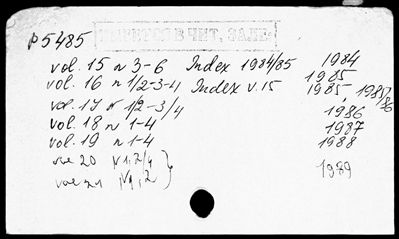 p 5485
ИМЕЕТСЯ В ЧИТ. ЗАЛЕ
vol. 15 n 3-6 Index 1984/85 1984
vol. 16 n 1/2-3-4 Index v. 15 1985
1985 1985/86
vol. 17 n 1/2-3/4 1986
vol. 18 n 1-4 1987
vol. 19 n 1-4 1988
vol 20 N 1, 2/4
vol 21 N 1, 2 1989